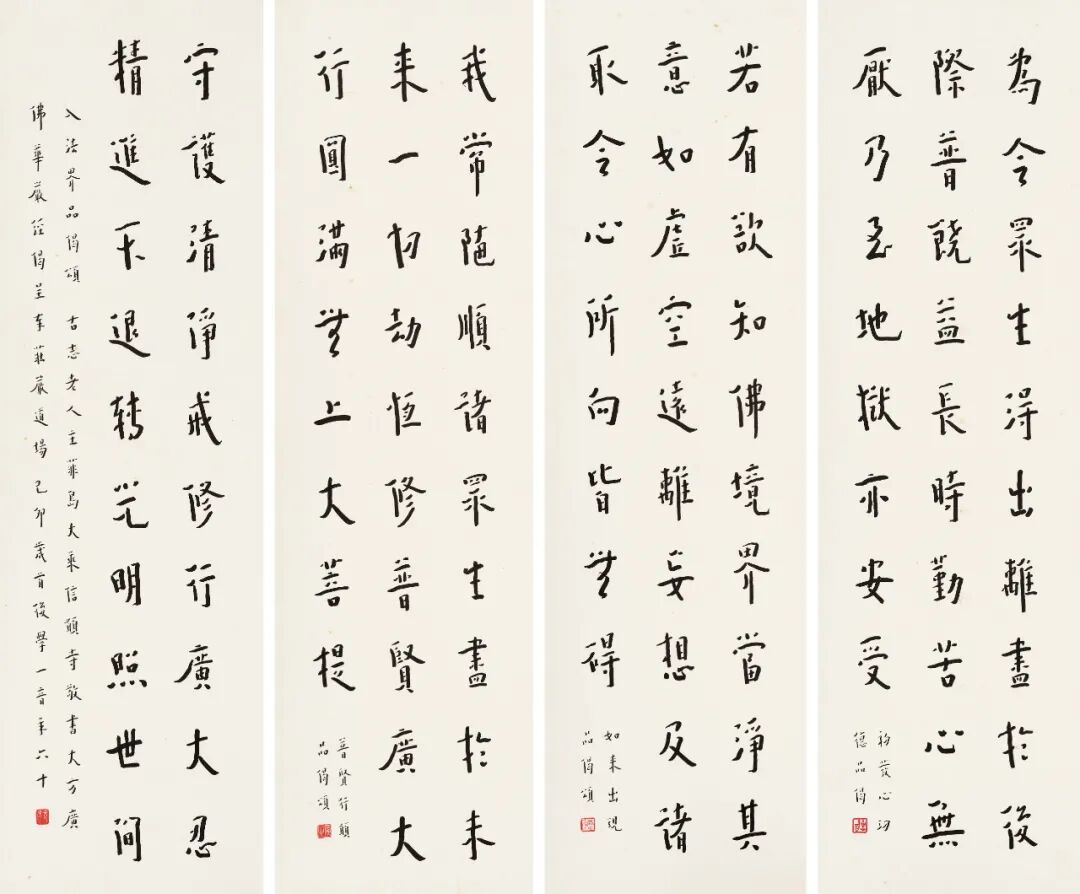 為令眾生得出離盡於後
際普饒益長時勤苦心無
厭乃至地獄亦安受
初發心功
德品偈
若有欲知佛境界當淨其
意如虛空遠離妄想及諸
取令心所向皆無碍
如來出現
品偈頌
我常隨順諸眾生盡於未
來一切劫恆修普賢廣大
行圓滿無上大菩提
普賢行願
品偈頌
守護清淨戒修行廣大忍
精進不退轉光明照世間
入法界品偈頌 古志老人主菲島大乘信願寺敬書大方廣
佛華嚴經偈呈奉莊嚴道場 己卯歲首後學一音年六十